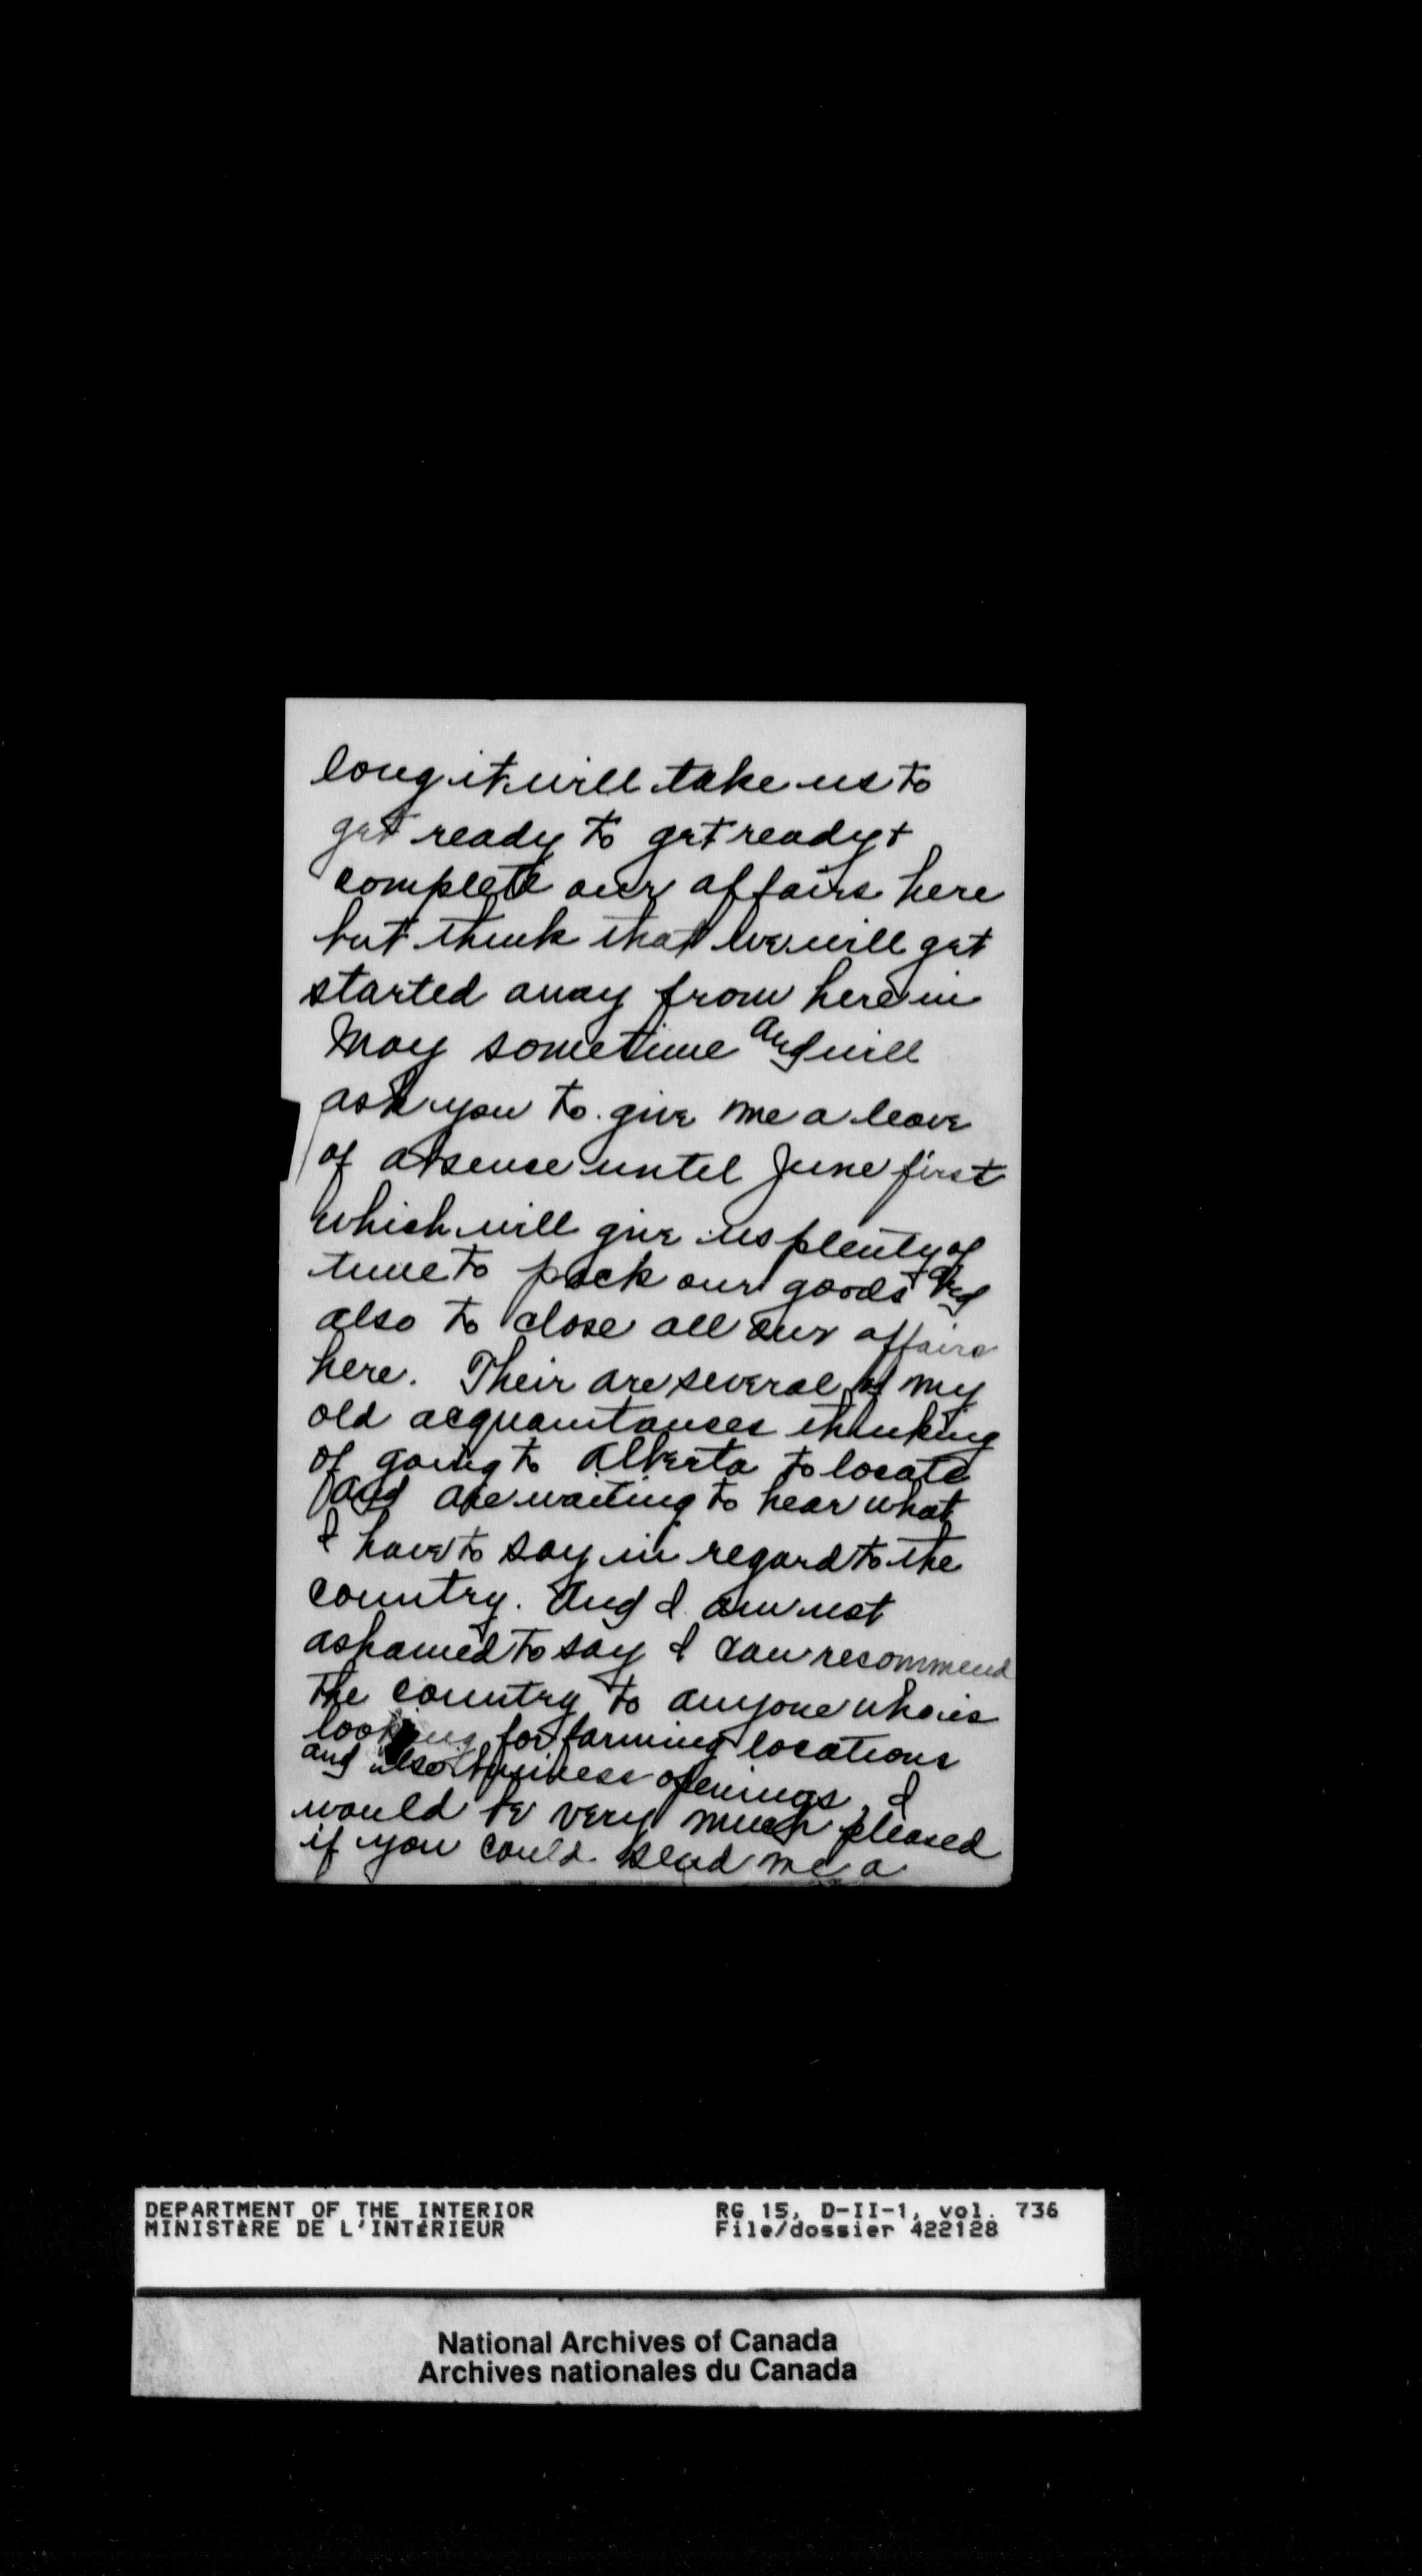 long it will take us to
get ready to get ready +
complete our affairs here
but think that we will get
started away from here in
May sometime and will
ask you to give me a leave
of absence until June first
which will give us plenty of
time to pack our goods + and
also to close all our affairs
here. Their are several of my
old acquaintances thinking
of going to Alberta to locate
and are waiting to hear what
I have to say in regard to the
country. And I am not
ashamed to say I can recommend
the country to anyone who is
looking for farming locations
and also business openings, I
would be very much pleased
if you could send me a
DEPARTMENT OF THE INTERIOR
MINISTÈRE DE L'INTÉRIEUR
RG 15, D-II-1, vol. 736
File/dossier 422128
National Archives of Canada
Archives nationales du Canada